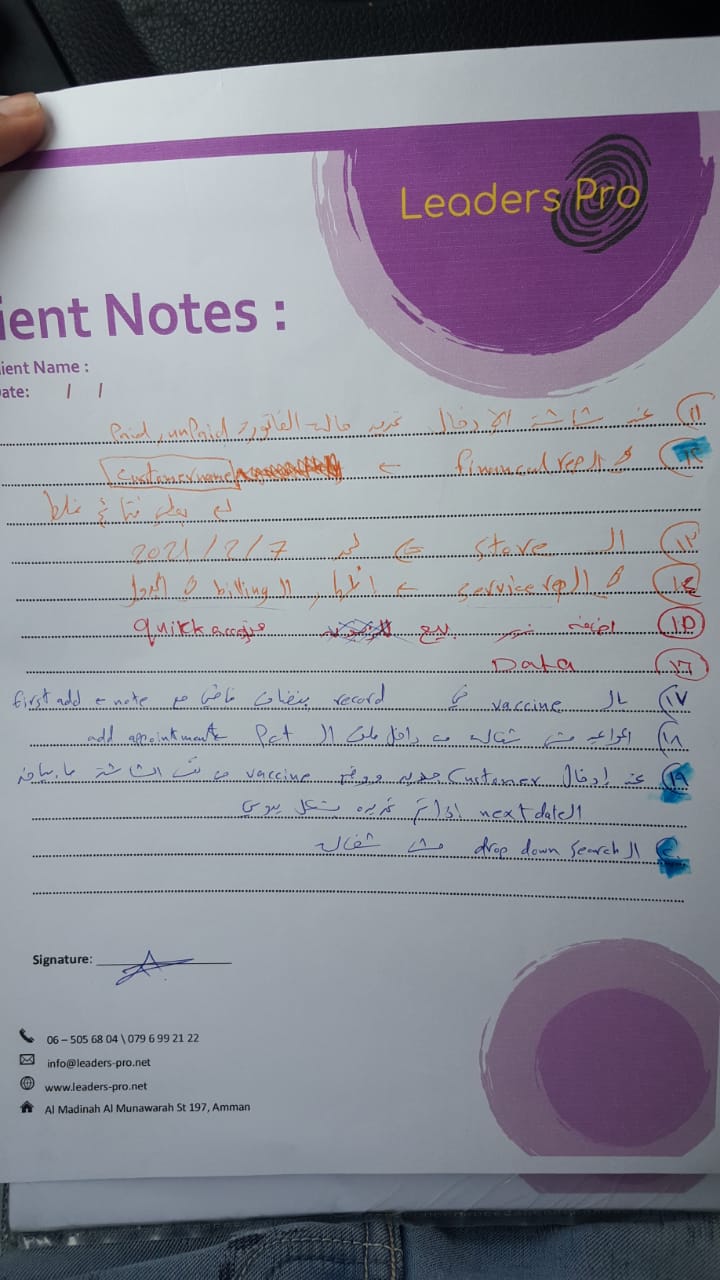 Leaders Pro
ient Notes :
ient Name :
ate: / /
(١١) عند شاشة الادخال تحديد حالة الفاتورة Paid, unPaid
(١٢) في ال financial rep ← Customer name
لم يعطي نتائج غلط
(١٣) ال Store 2021/2/7
(١٤) في ال service rep ← ال billing في
(١٥) اضافة بيع quikk
(١٦) Data
(١٧) بال vaccine في record مع note first add
(١٨) المواعيد مش شغالة من داخل ملف ال Pet add appointment
(١٩) عند إدخال Customer جديد vaccine من نفس الشاشة ما بياخذ
ال next date اذا تم تحديده بشكل يدوي
(٢٠) ال drop down search مش شغاله
Signature:
06 – 505 68 04 \ 079 6 99 21 22
info@leaders-pro.net
www.leaders-pro.net
Al Madinah Al Munawarah St 197, Amman